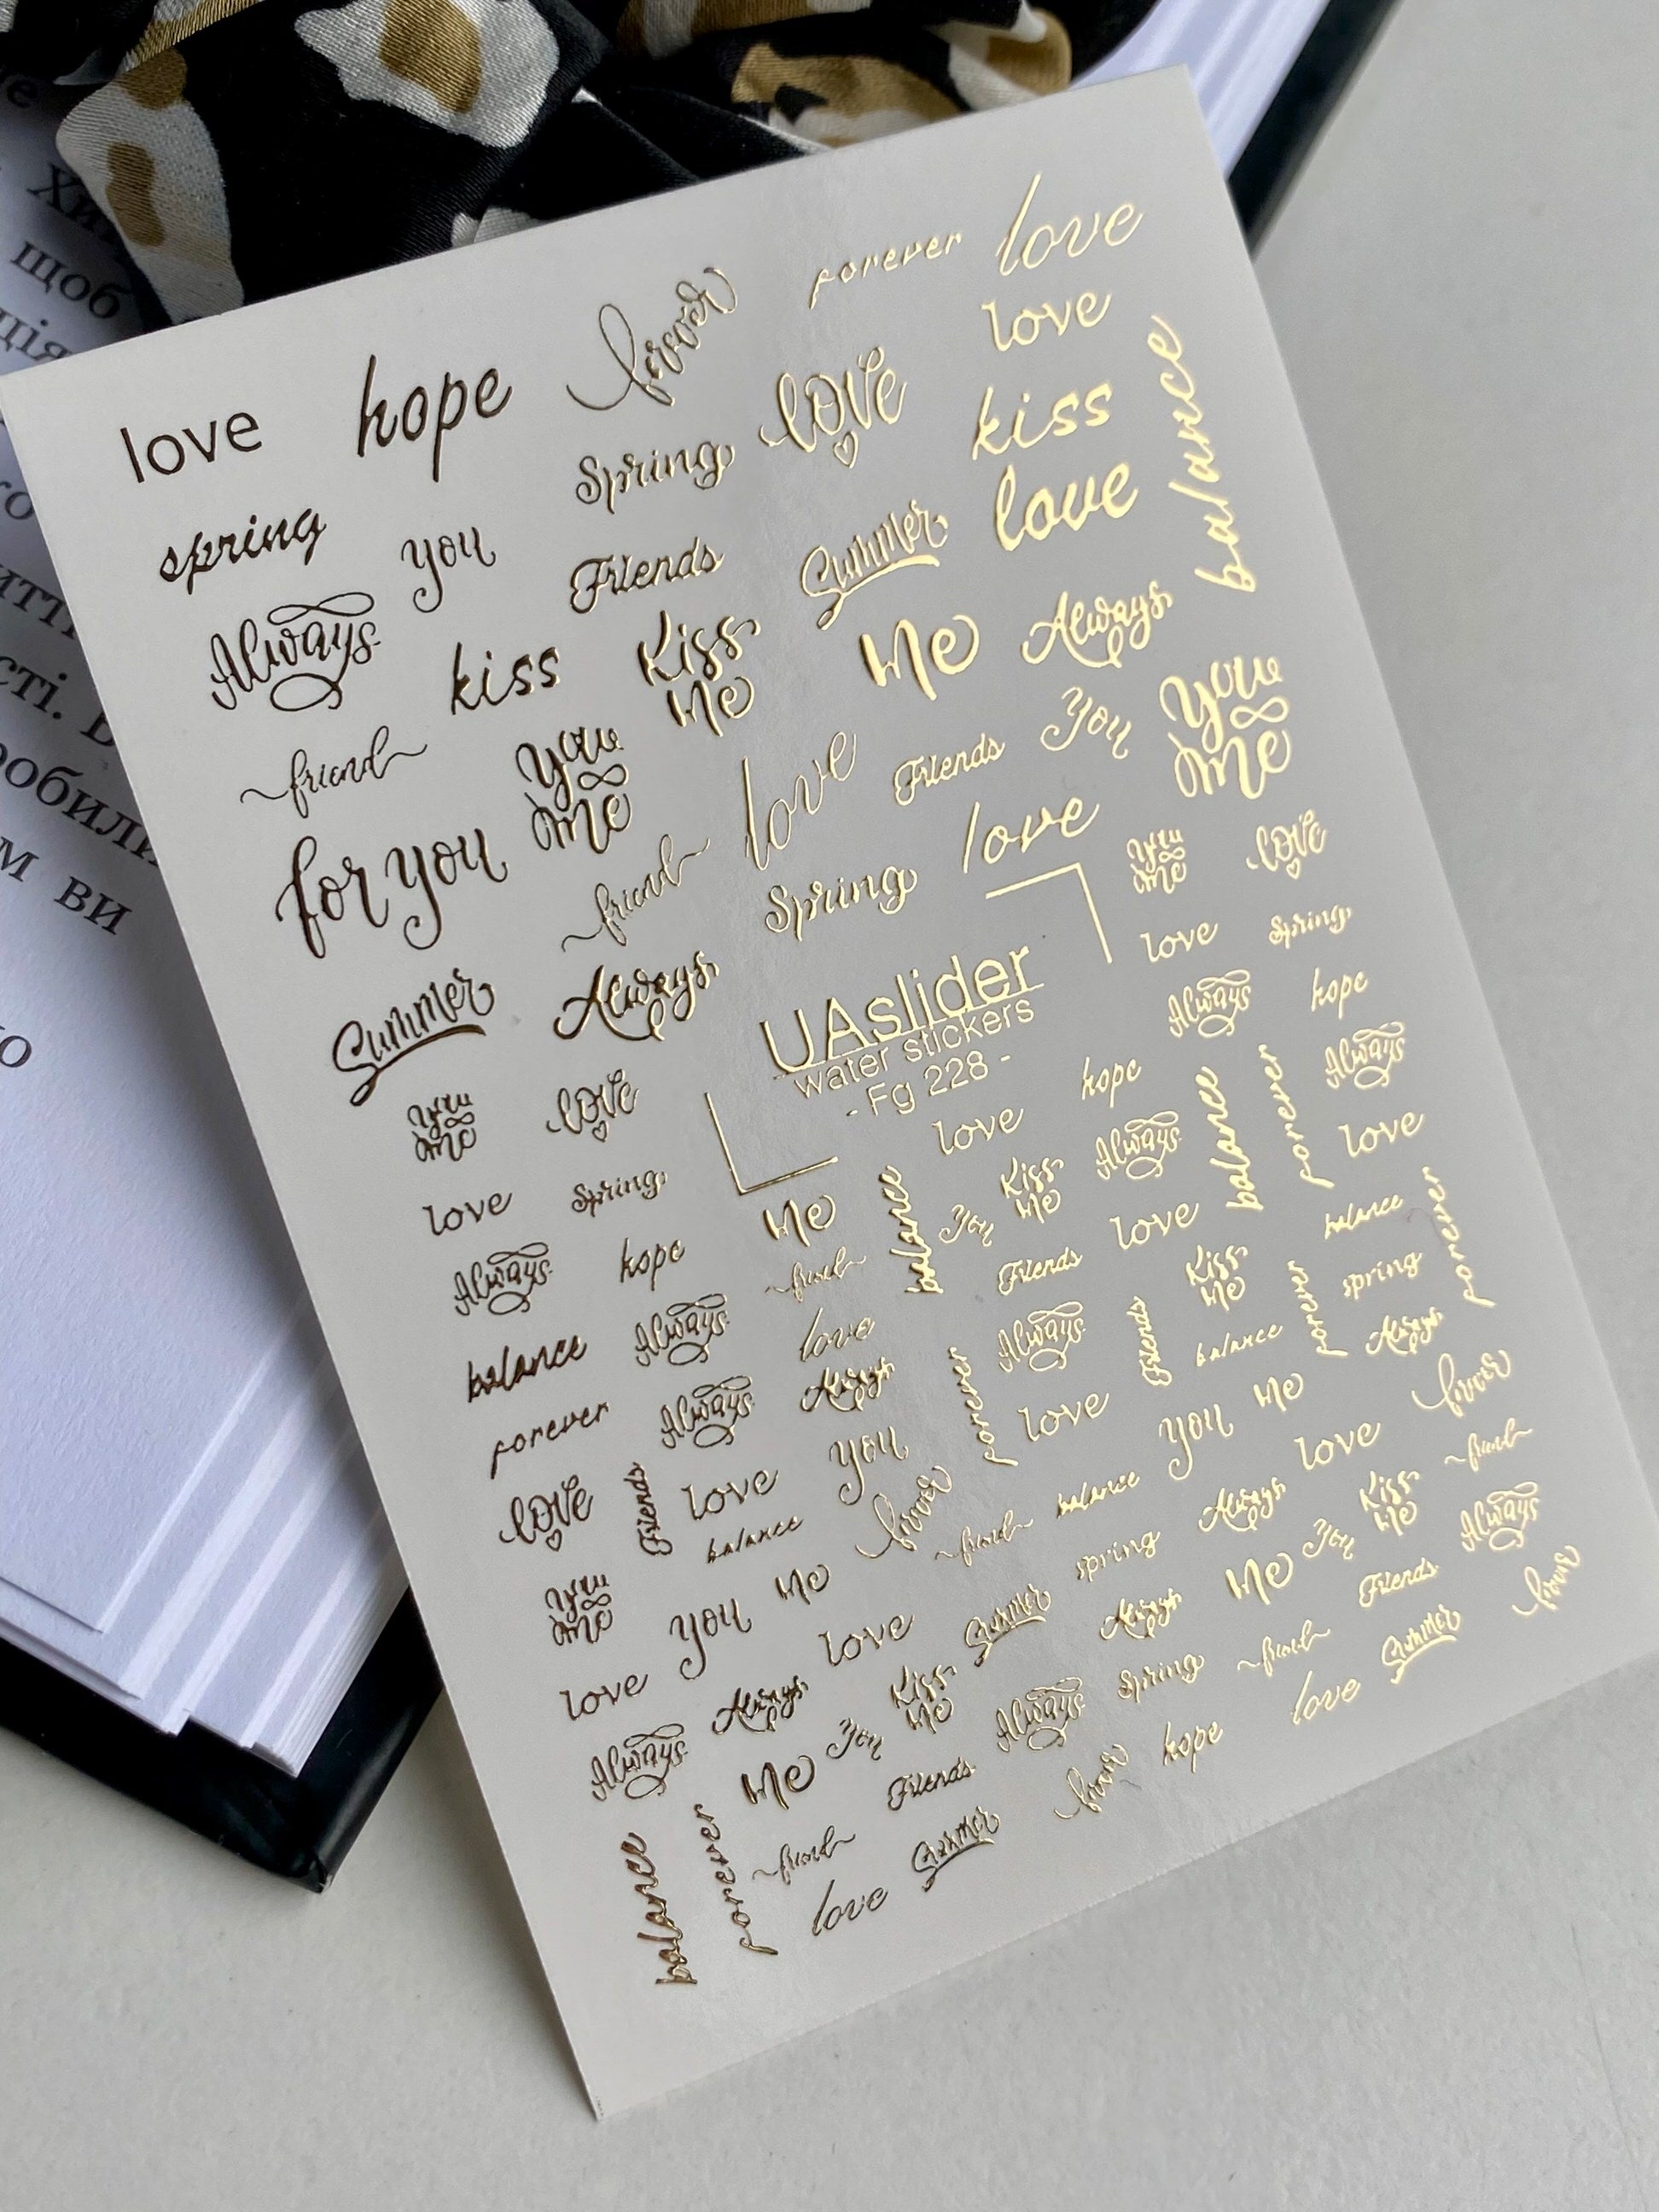 love hope forever forever love
spring you Spring love love
Always kiss Friends Summer kiss
friend You Kiss Me Always love
for you Me friend love Friends You balance
Summer Always Spring love You
Me
UAslider
water stickers
- Fg 228 -
You love You love
Me Me
love Spring love Spring
Always hope Always hope
balance Always love hope Always
forever Always Me balance love Always balance forever love
love Friends love friend You Kiss Me love balance
You balance love Friends Kiss Me spring forever
Me Always Always Friends balance forever Always
love you Me you forever love you Me love forever
Always Always love friend balance Always Kiss Me friend
Me You Kiss Me Summer spring Me You Always
balance forever Friends Always Always Spring Friends forever
friend Summer forever hope friend Summer
love love
Хи
щоб
ція
сті. В
робили
м ви